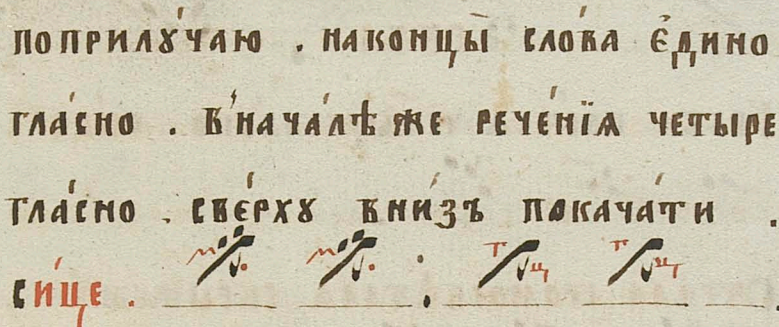 поприлꙋ́чаю . наконцы̀ сло́ва є҆́дино
гла́сно . в̾нача́лѣ же рече́нїѧ четыре
гла́сно . све́рху вни́зъ покача́ти .
си́це .